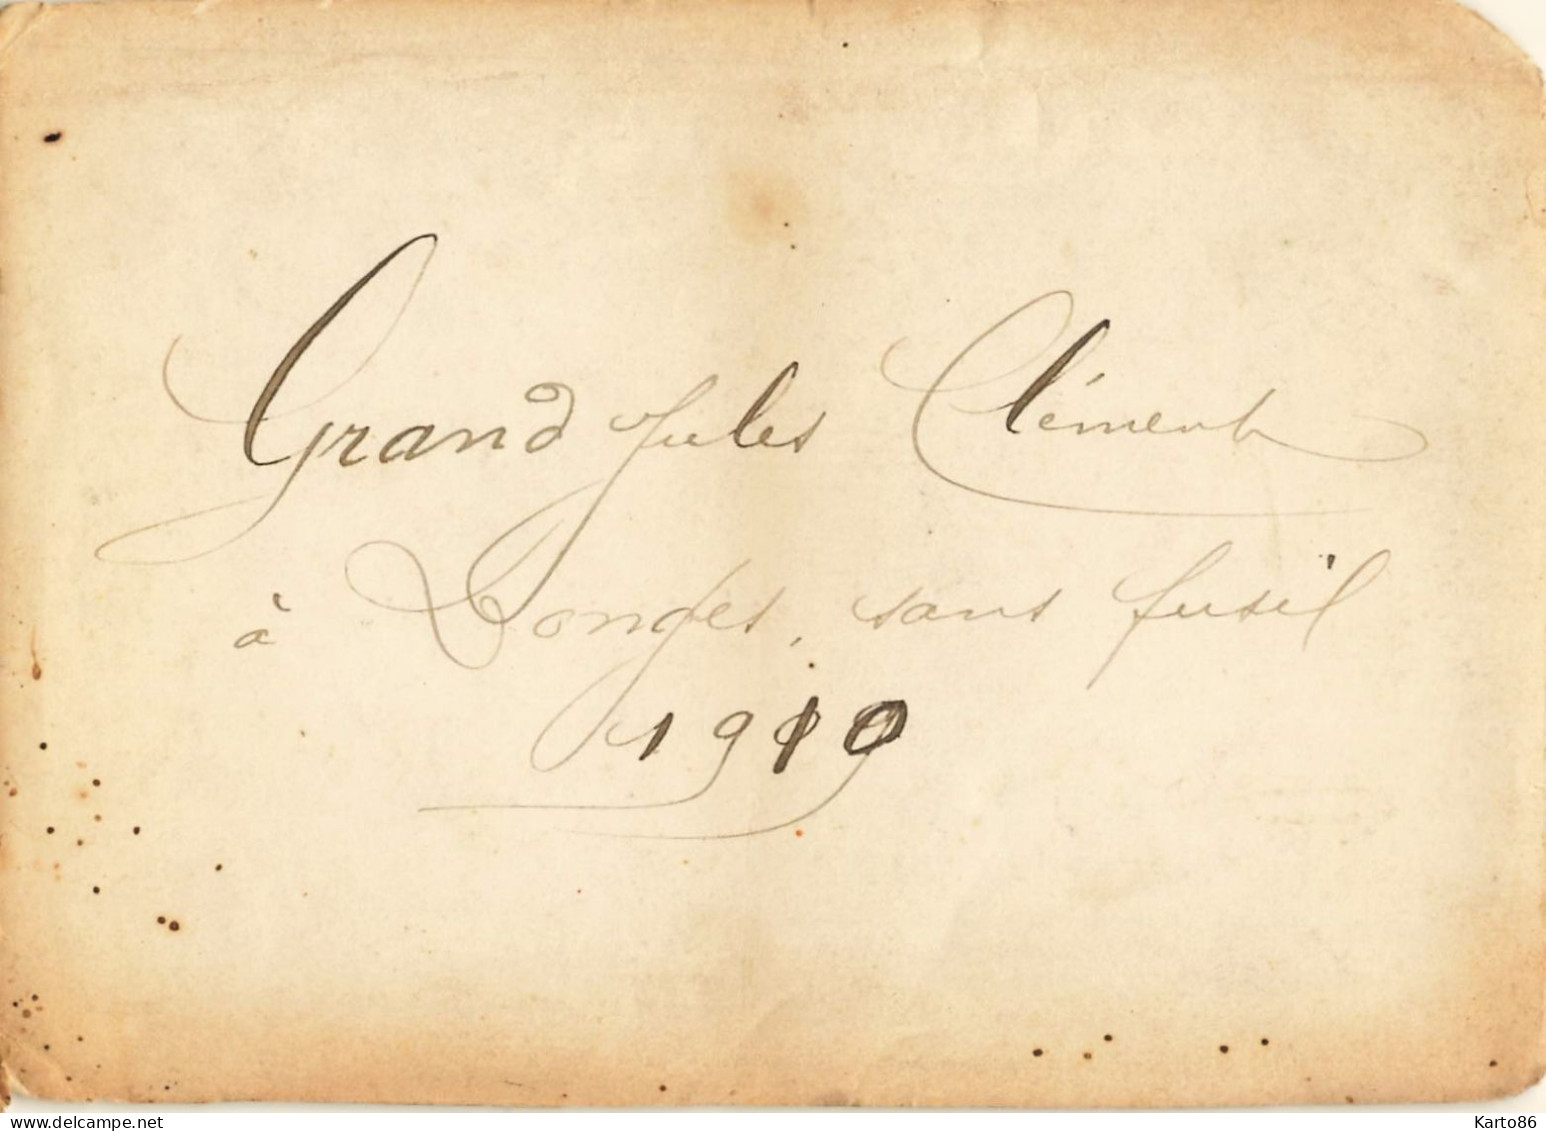 Grand Jules Clément
à Donges, sans fusil
1919
Delcampe.net
Karto86